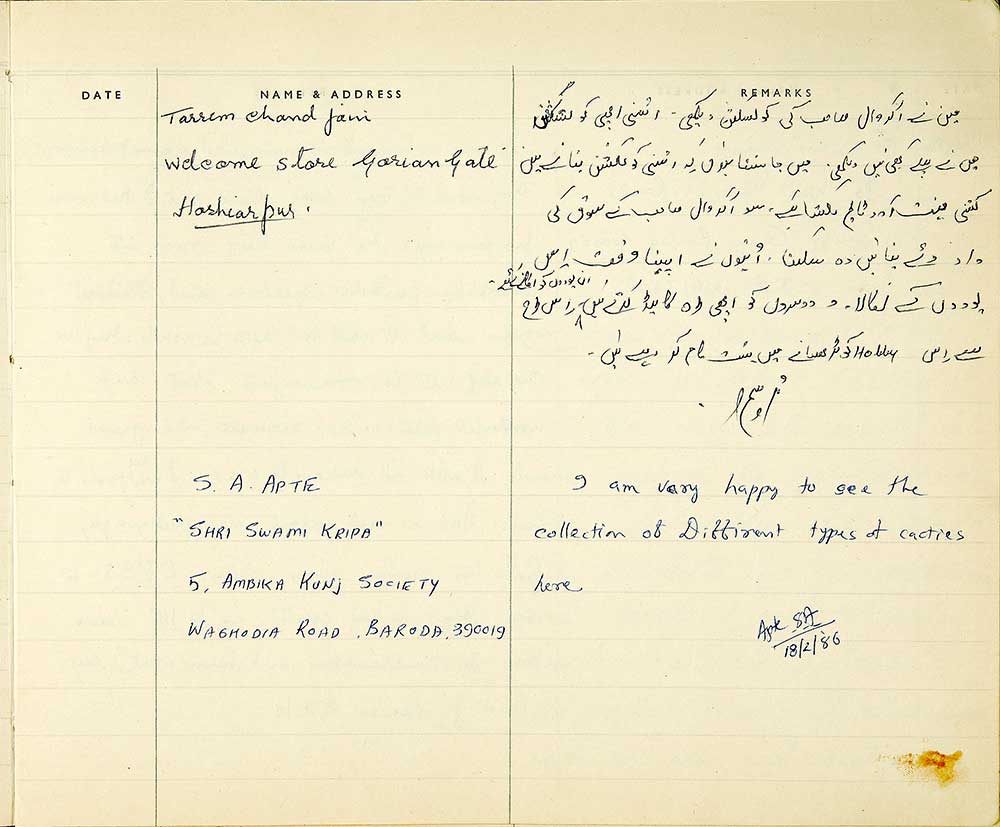 DATE
NAME & ADDRESS
REMARKS
Tarsem chand Jain
Welcome store Gorian Gate
Hoshiarpur.
میں نے اگروال صاحب کی کولیکشن دیکھی - اتنی اچھی کولیکشن
میں نے پہلے کبھی نہیں دیکھی. میں جانتا ہوں کہ اتنی کولکشن بنانے میں
کتنی محنت اور ٹائم لگتا ہے. میں اگروال صاحب کے شوق کی
داد دئے بنا نہیں رہ سکتا. اُنہوں نے اپنا وقت اِس
پودوں کے نکالا. و دوسروں کو اچھی راہ گائیڈ کرتے ہیں اس طرح
سے اِس Hobby کو میں بہت کام کر رہے ہیں -
S. A. APTE
"SHRI SWAMI KRIPA"
5, AMBIKA KUNJ SOCIETY
WAGHODIA ROAD, BARODA, 390019
I am very happy to see the
collection of Diffirent types of cacties
here
Apte SA
18/2/86